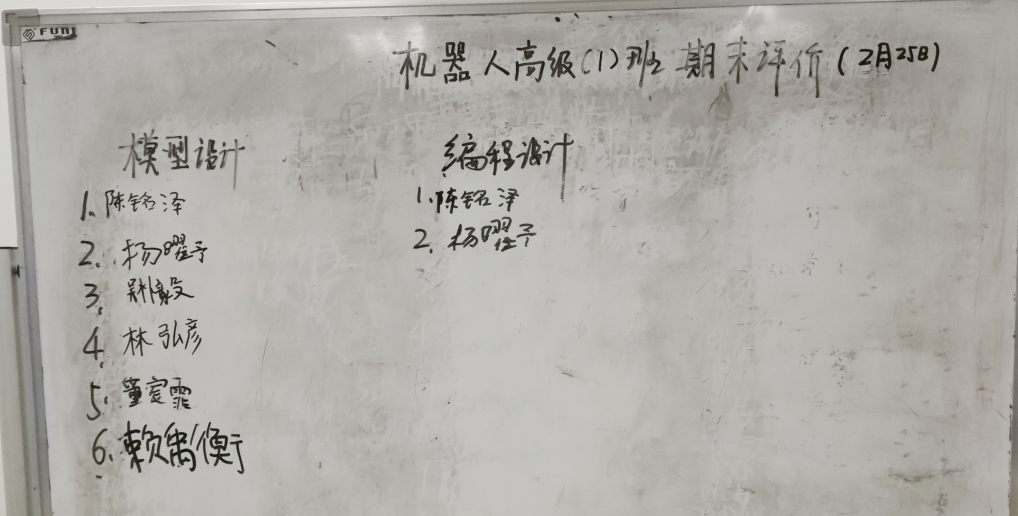 FUNI
机器人高级(1)班 期末评价(2月25日)
模型设计
1.陈铭泽
2.杨曜予
3.
4.林弘彦
5.董宣霏
6.赖禹衡
编程设计
1.陈铭泽
2.杨曜予